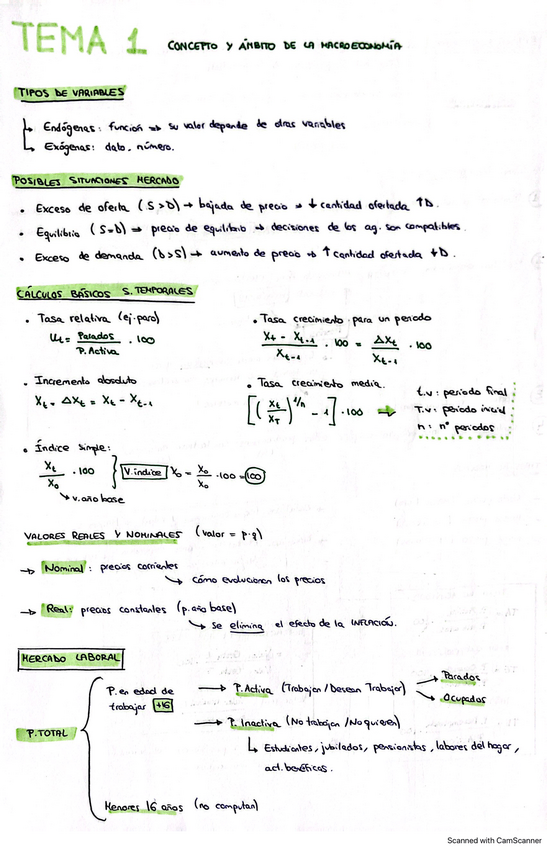 TEMA 1 CONCEPTO Y ÁMBITO DE LA MACROECONOMÍA
TIPOS DE VARIABLES
↳ Endógenas: función ⇒ su valor depende de otras variables
↳ Exógenas: dato, número.
POSIBLES SITUACIONES MERCADO
• Exceso de oferta (S>D) → bajada de precio → ↓ cantidad ofertada ↑D.
• Equilibrio (S=D) → precio de equilibrio → decisiones de los ag. son compatibles.
• Exceso de demanda (D>S) → aumento de precio → ↑ cantidad ofertada ↓D.
CÁLCULOS BÁSICOS S. TEMPORALES
• Tasa relativa (ej. paro)
Ut = Parados / P. Activa · 100
• Tasa crecimiento para un periodo
Xt - Xt-1 / Xt-1 · 100 = ΔXt / Xt-1 · 100
• Incremento absoluto
Xt = ΔXt = Xt - Xt-1
• Tasa crecimiento media.
[(Xt / XT)^1/n - 1] · 100 ⇒
t.v: periodo final
T.v: periodo inicial
n: nº periodos
• Índice simple:
Xt / X0 · 100 } V. índice X0 = X0 / X0 · 100 = 100
↘ v. año base
VALORES REALES Y NOMINALES (valor = p·q)
→ Nominal: precios corrientes
↳ cómo evolucionan los precios
→ Real: precios constantes (p. año base)
↳ Se elimina el efecto de la INFLACIÓN.
MERCADO LABORAL
P. TOTAL
P. en edad de trabajar +16
→ P. Activa (Trabajan / Desean Trabajar)
→ Parados
→ Ocupados
→ P. Inactiva (No trabajan / No quieren)
↳ Estudiantes, jubilados, pensionistas, labores del hogar,
act. benéficas.
Menores 16 años (no computan)
Scanned with CamScanner